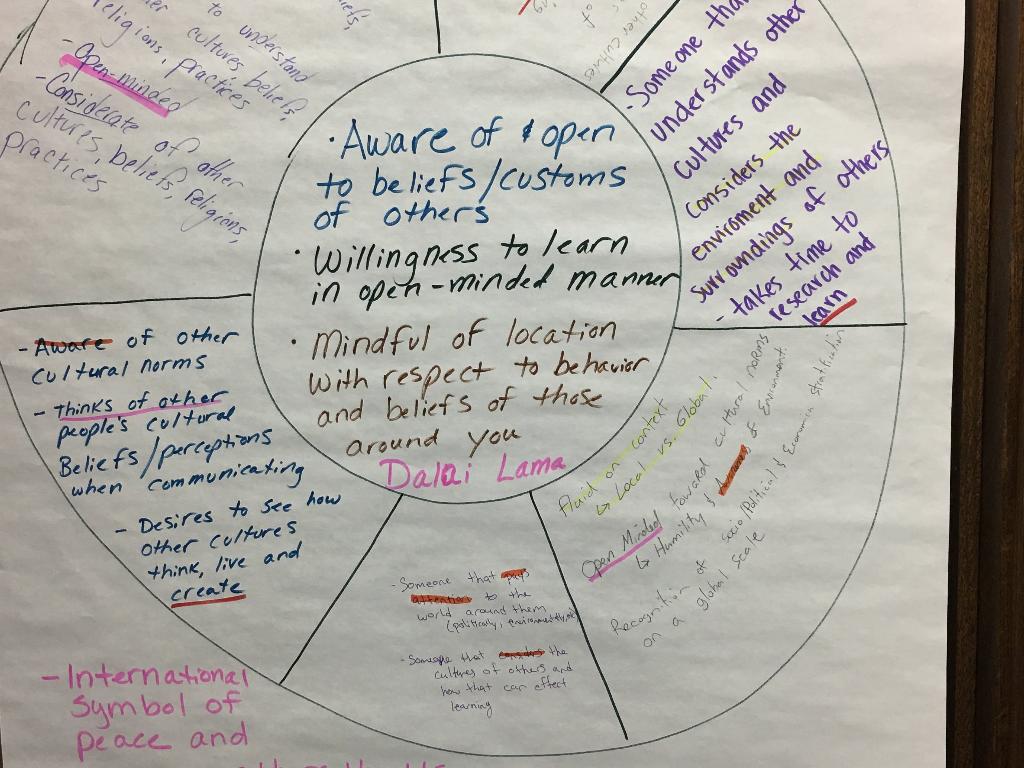 to understand
cultures beliefs,
religions, practices
- Open-minded
- Considerate of other
cultures, beliefs, religions,
practices
other cultures
of
- Someone that
understands other
cultures and
considers the
enviroment and
surroundings of others
- takes time to
research and
learn
• Aware of & open
to beliefs/customs
of others
• Willingness to learn
in open-minded manner
• Mindful of location
with respect to behavior
and beliefs of those
around you
Dalai Lama
- Aware of other
cultural norms
- Thinks of other
people's cultural
Beliefs/perceptions
when communicating
- Desires to see how
other cultures
think, live and
create
- Someone that pays
attention to the
world around them
(politically, environmentally,
- Someone that considers the
cultures of others and
how that can effect
learning
Fluid on context
↳ Local vs. Global.
Open Minded toward cultural norms
↳ Humility & Awareness of Environment.
Recognition of socio/Political & Economic stratification
on a global scale
- International
Symbol of
peace and